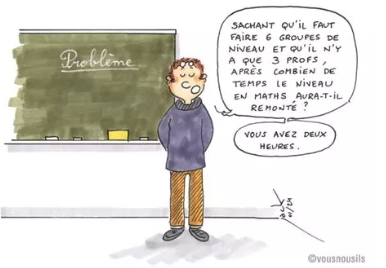 Problème
SACHANT QU'IL FAUT
FAIRE 6 GROUPES DE
NIVEAU ET QU'IL N'Y
A QUE 3 PROFS,
APRÈS COMBIEN DE
TEMPS LE NIVEAU
EN MATHS AURA-T-IL
REMONTÉ ?
VOUS AVEZ DEUX
HEURES.
©vousnousils